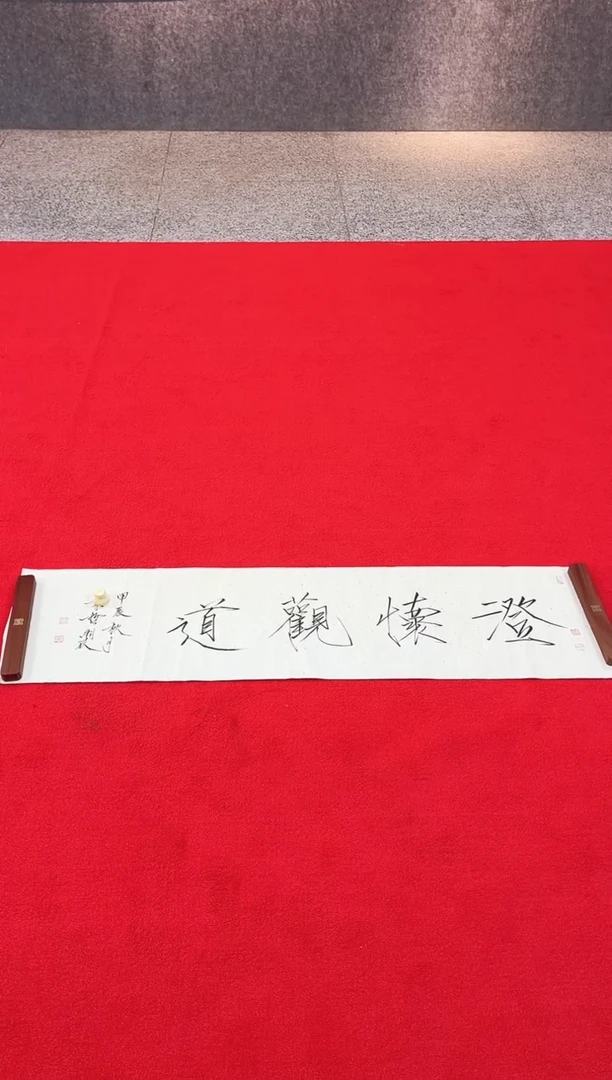 澄懷觀道
甲辰秋月